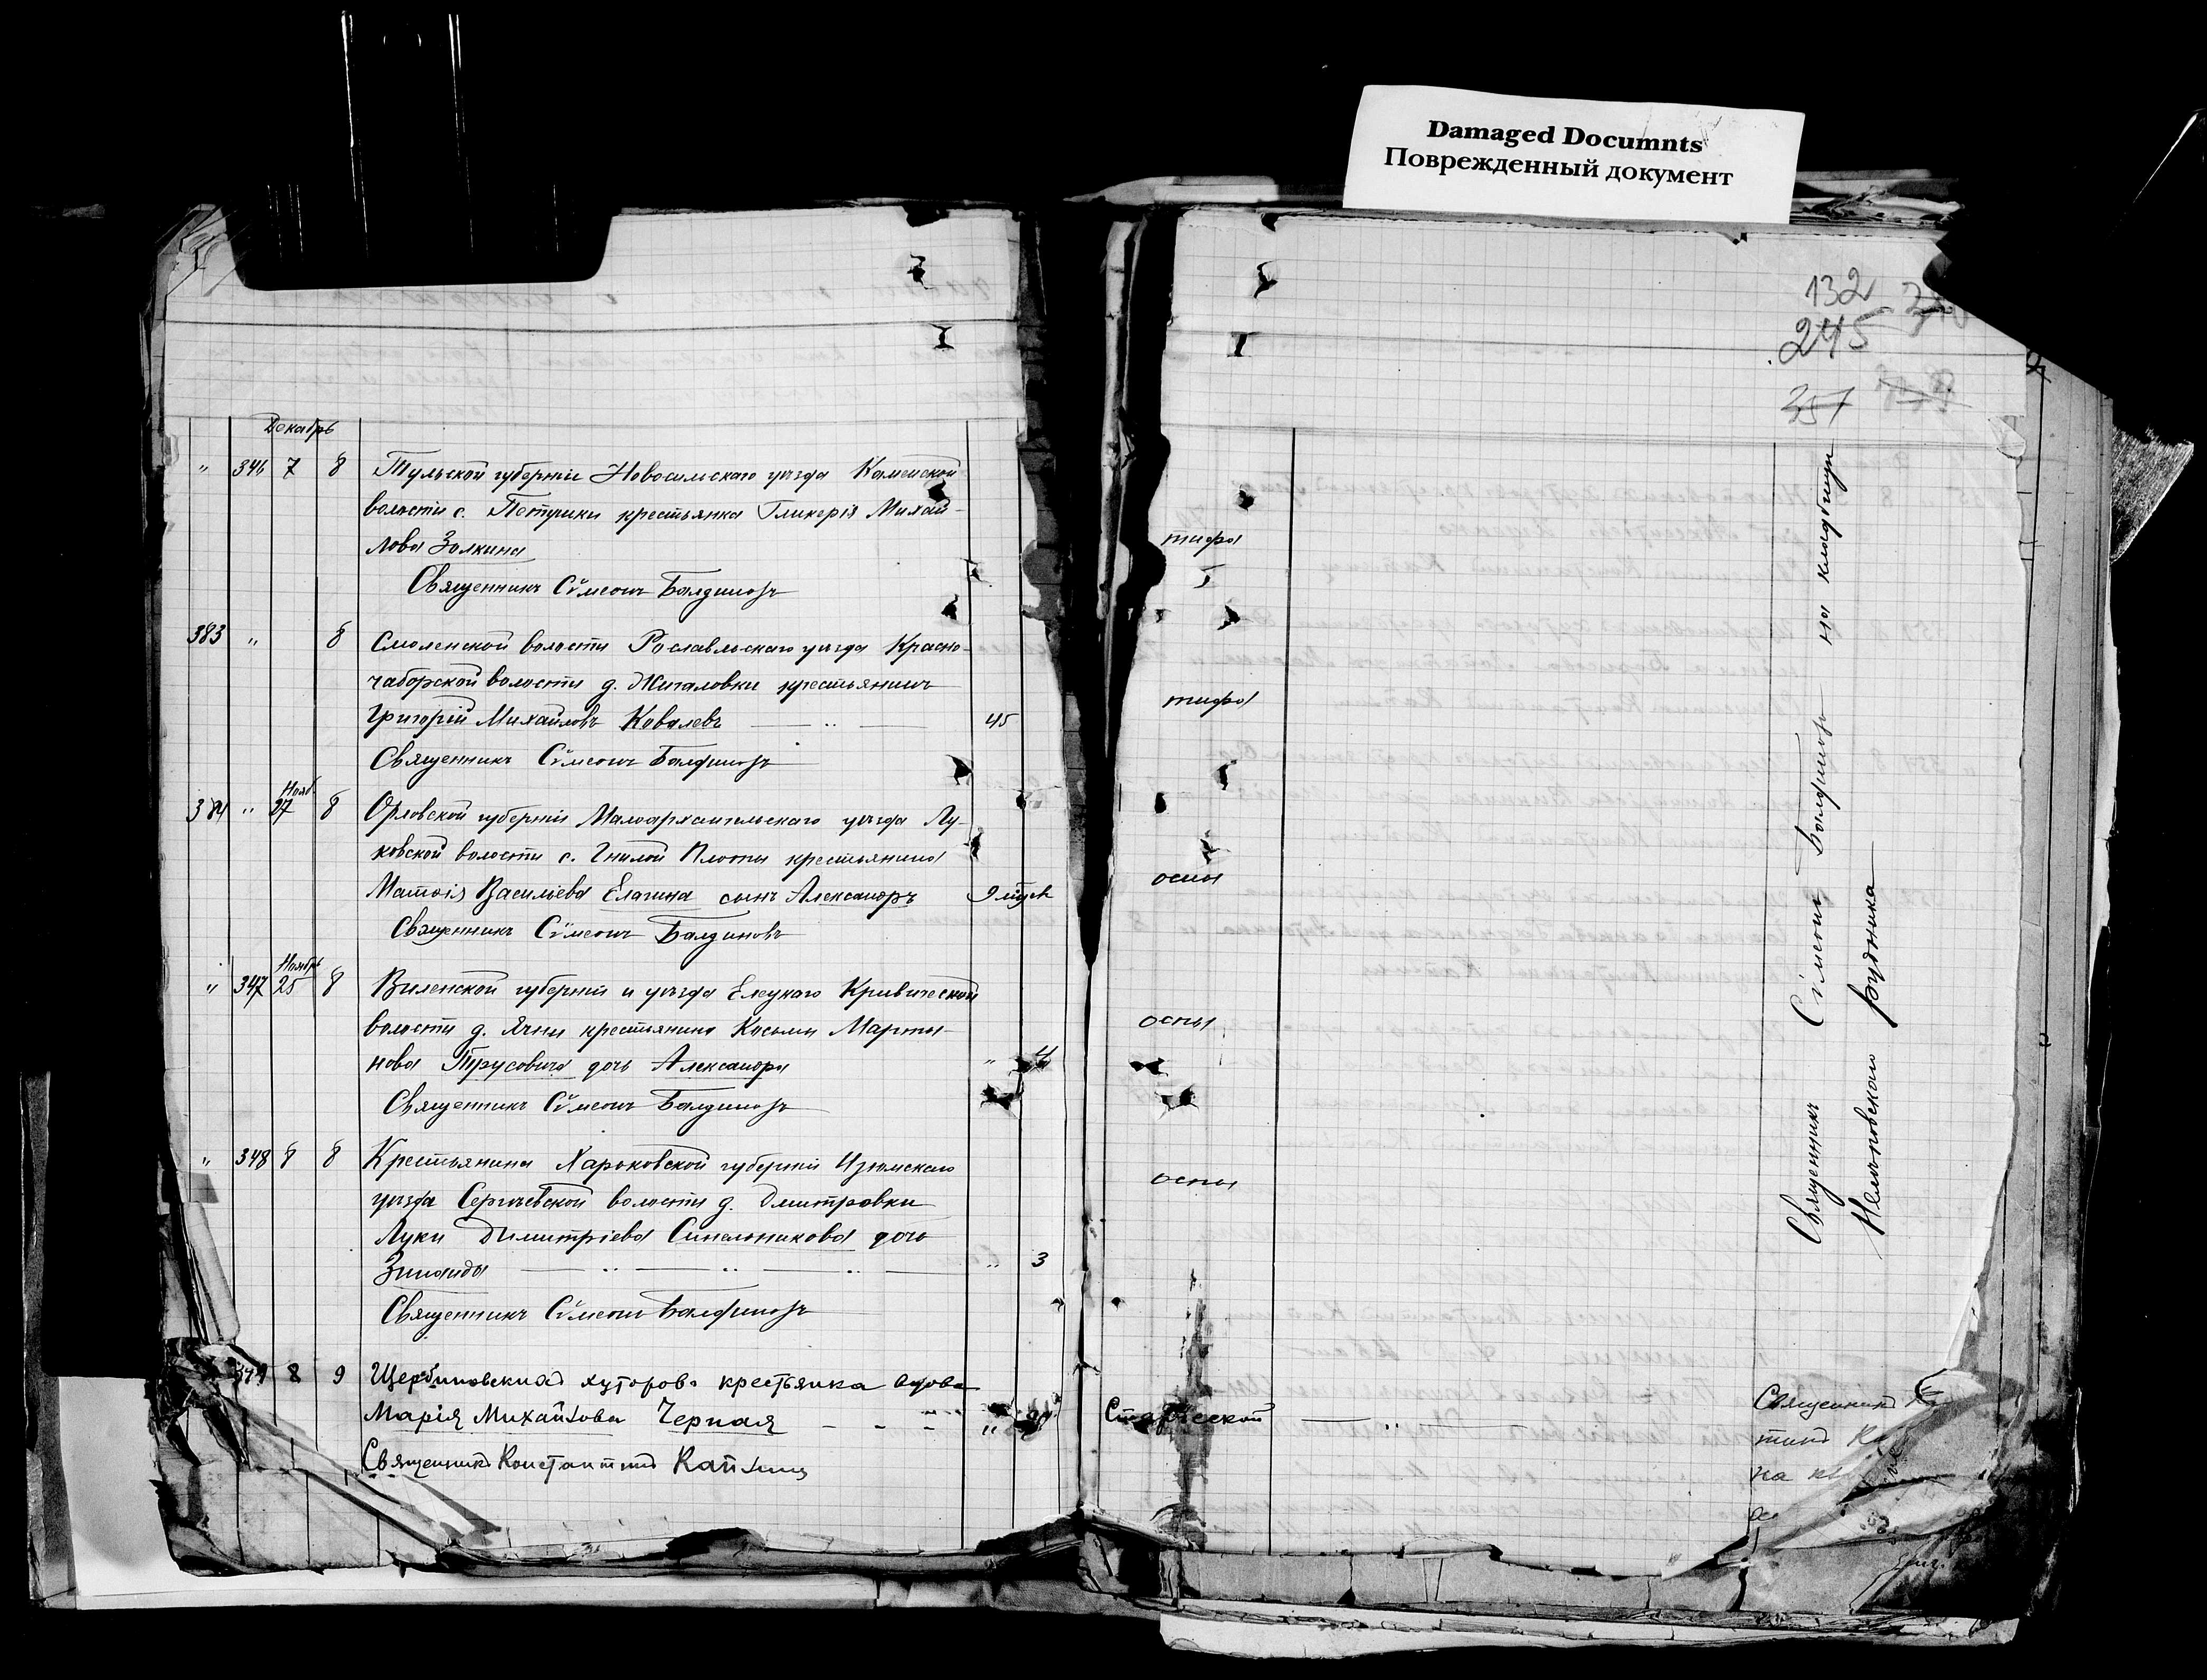 Damaged Documnts
Поврежденный документ
132
245
357
Декабрь
" 346 7 8 Тульской губерніи Новосильскаго уѣзда Каменской
волости с. Петушки крестьянка Гликерія Михай-
лова Золкина тифа
Священникъ Сѵмеонъ Балдиновъ
383 " 8 Смоленской волости Рославльскаго уѣзда Красно-
заборской волости д. Жигаловки крестьянинъ
Григорій Михайловъ Ковалевъ 45 тифа
Священникъ Сѵмеонъ Балдиновъ
Нояб.
384 " 27 8 Орловской губерніи Малоархангельскаго уѣзда Лу-
ковской волости с. Гнилой Плоты крестьянина
Матѳія Васильева Елагина сынъ Александръ 9 мѣсяц оспы
Священникъ Сѵмеонъ Балдиновъ
Ноябрь
" 347 25 8 Виленской губерніи и уѣзда Кривической
волости д. крестьянина Косьмы Марты-
нова Трусовича дочь Александра " 4 оспы
Священникъ Сѵмеонъ Балдиновъ
" 348 8 8 Крестьянина Харьковской губерніи Изюмскаго
уѣзда Сергіевской волости д. Дмитровки
Луки Димитріева Синельникова дочь
Зинаида " 3 оспы
Священникъ Сѵмеонъ Балдиновъ
349 8 9 Щербиновскихъ хуторовъ крестьянка вдова
Марія Михайлова Черная " Старческой
Священникъ Константинъ
Священникъ Сѵмеонъ Балдиновъ на кладбищѣ
Нелѣповскаго Рудника
Священникъ
на